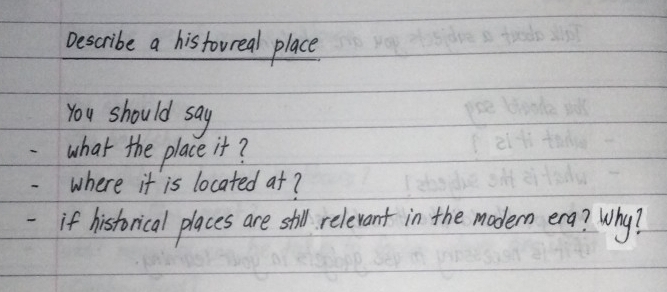 Describe a histoureal place
You should say
- what the place it ?
- where it is located at ?
- if historical places are still relevant in the modern era? Why?